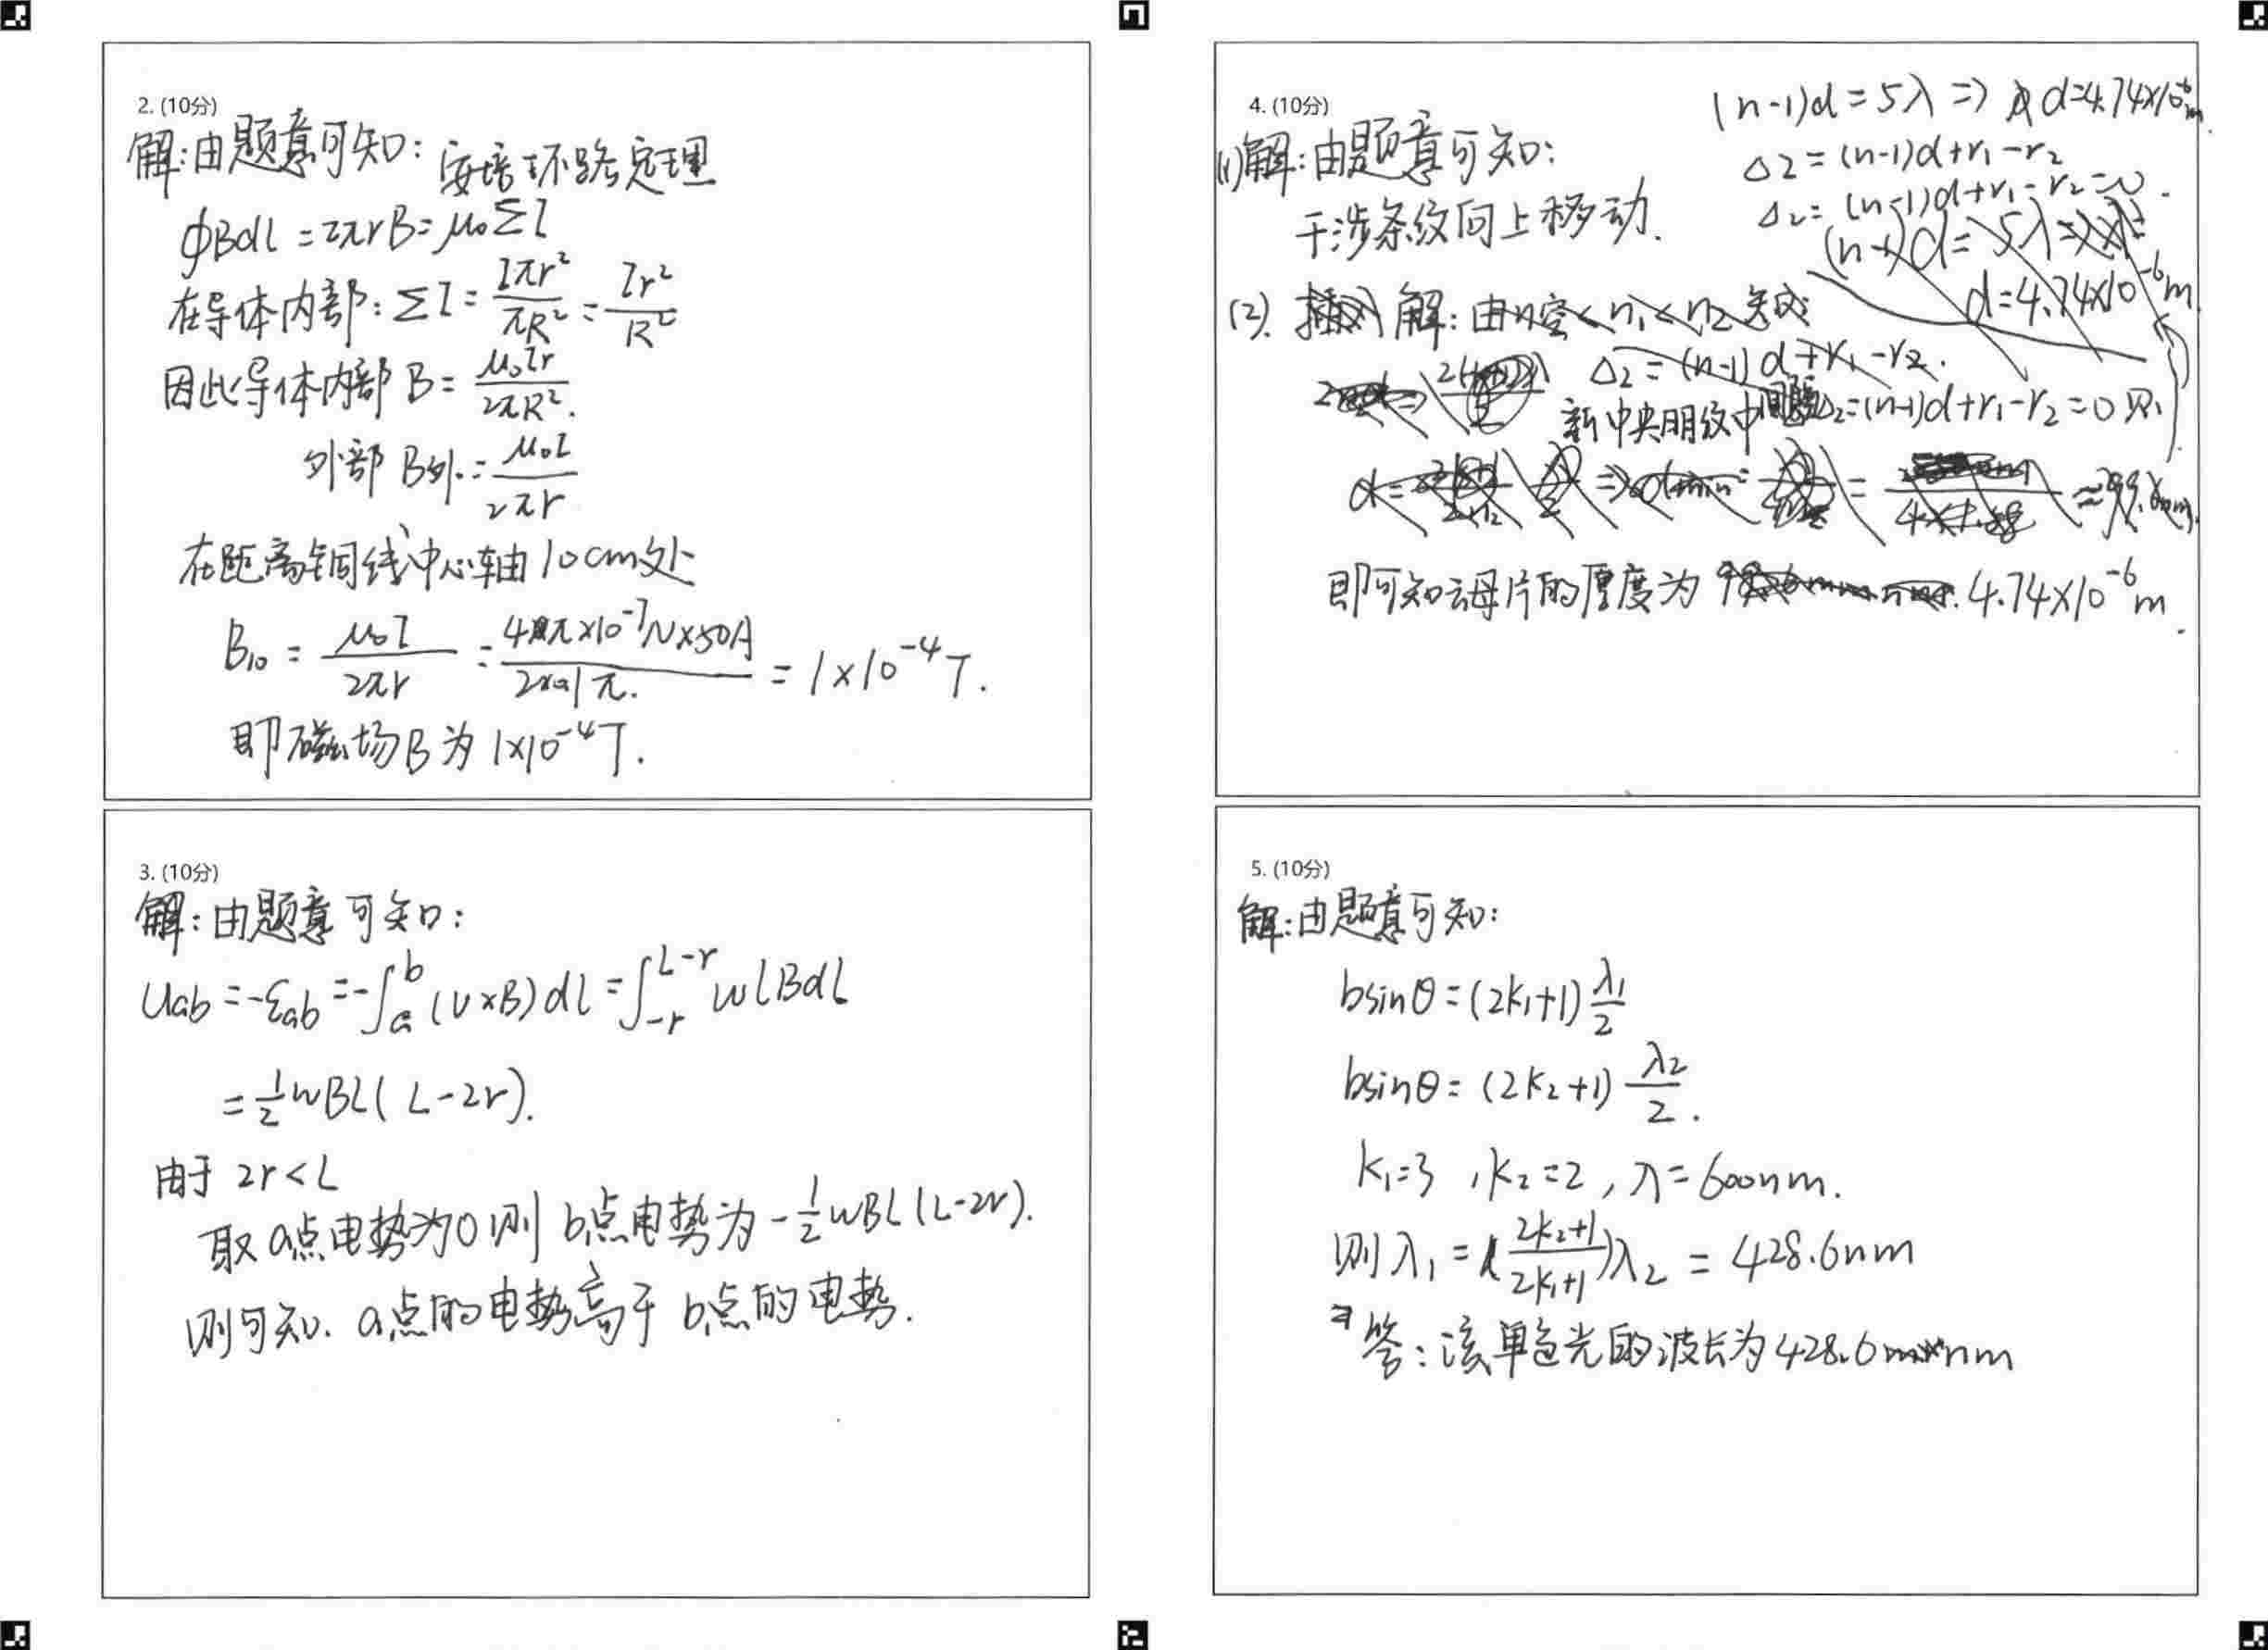 2. (10分)
解:由题意可知: 安培环路定理
∮Bdl = 2πrB = μ₀ΣI
在导体内部: ΣI = Iπr²/πR² = Ir²/R²
因此导体内部 B = μ₀Ir/2πR².
外部 B外 = μ₀I/2πr
在距离铜线中心轴由 10cm处
B₁₀ = μ₀I/2πr = 4π×10⁻⁷N×50A/2×0.1π. = 1×10⁻⁴T.
即磁场B为 1×10⁻⁴T.
3. (10分)
解:由题意可知:
Uab = -εab = -∫ₐᵇ(v×B)dl = ∫₋ᵣᴸ⁻ʳ wlBdl
= ½wBL(L-2r).
由于 2r<L
取a点电势为0则 b点电势为 -½wBL(L-2r).
则可知. a点的电势高于 b点的电势.
4. (10分)
(1)解:由题意可知:
干涉条纹向上移动.
(n-1)d = 5λ => d=4.74×10⁻⁶m.
Δ2 = (n-1)d+r₁-r₂
Δ2 = (n-1)d+r₁-r₂=0.
(n-1)d = 5λ =>
d=4.74×10⁻⁶m
(2). 插入 解: 由n空<n₁<n₂知
Δ2 = (n-1)d+r₁-r₂.
新中央明纹中 Δ2=(n-1)d+r₁-r₂=0 则
即可知云母片的厚度为 4.74×10⁻⁶m.
5. (10分)
解:由题意可知:
bsinθ = (2k₁+1)λ₁/2
bsinθ = (2k₂+1)λ₂/2.
k₁=3 , k₂=2 , λ=600nm.
则 λ₁ = (2k₂+1/2k₁+1)λ₂ = 428.6nm
答: 该单色光的波长为428.6nm